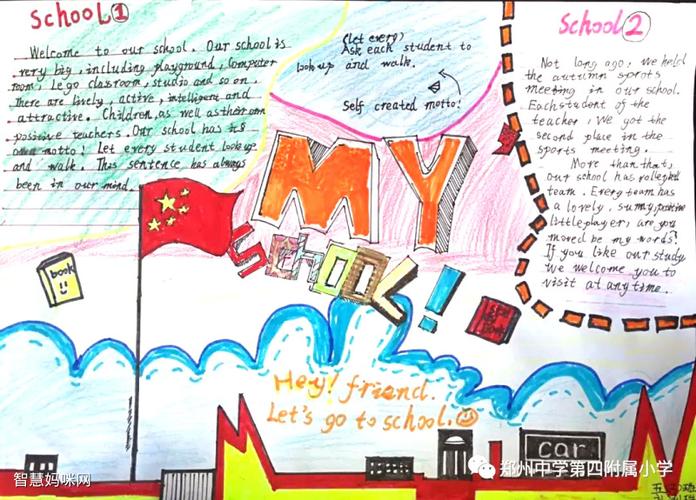 School ①
Welcome to our school. Our school is
very big, including playground, Computer
room, Lego classroom, studio and so on.
There are lively, active, intelligent and
attractive. Children, as well as their own
positive teachers. Our school has its
own motto! Let every student look up
and walk. This sentence has always
been in our mind.
(let every)
Ask each student to
look up and walk.
Self created motto!
MY
SCHOOL!
book
School ②
Not long ago, we held
the autumn sports
meeting in our school.
Each student of the
teacher, We got the
second place in the
sports meeting.
More than that,
our school has volleyball
team. Every team has
a lovely, sunny, positive
little player, are you
moved be my words?
If you like our study
we welcome you to
visit at any time.
Hey! friend.
Let's go to school.
car
智慧妈咪网
郑州中学第四附属小学